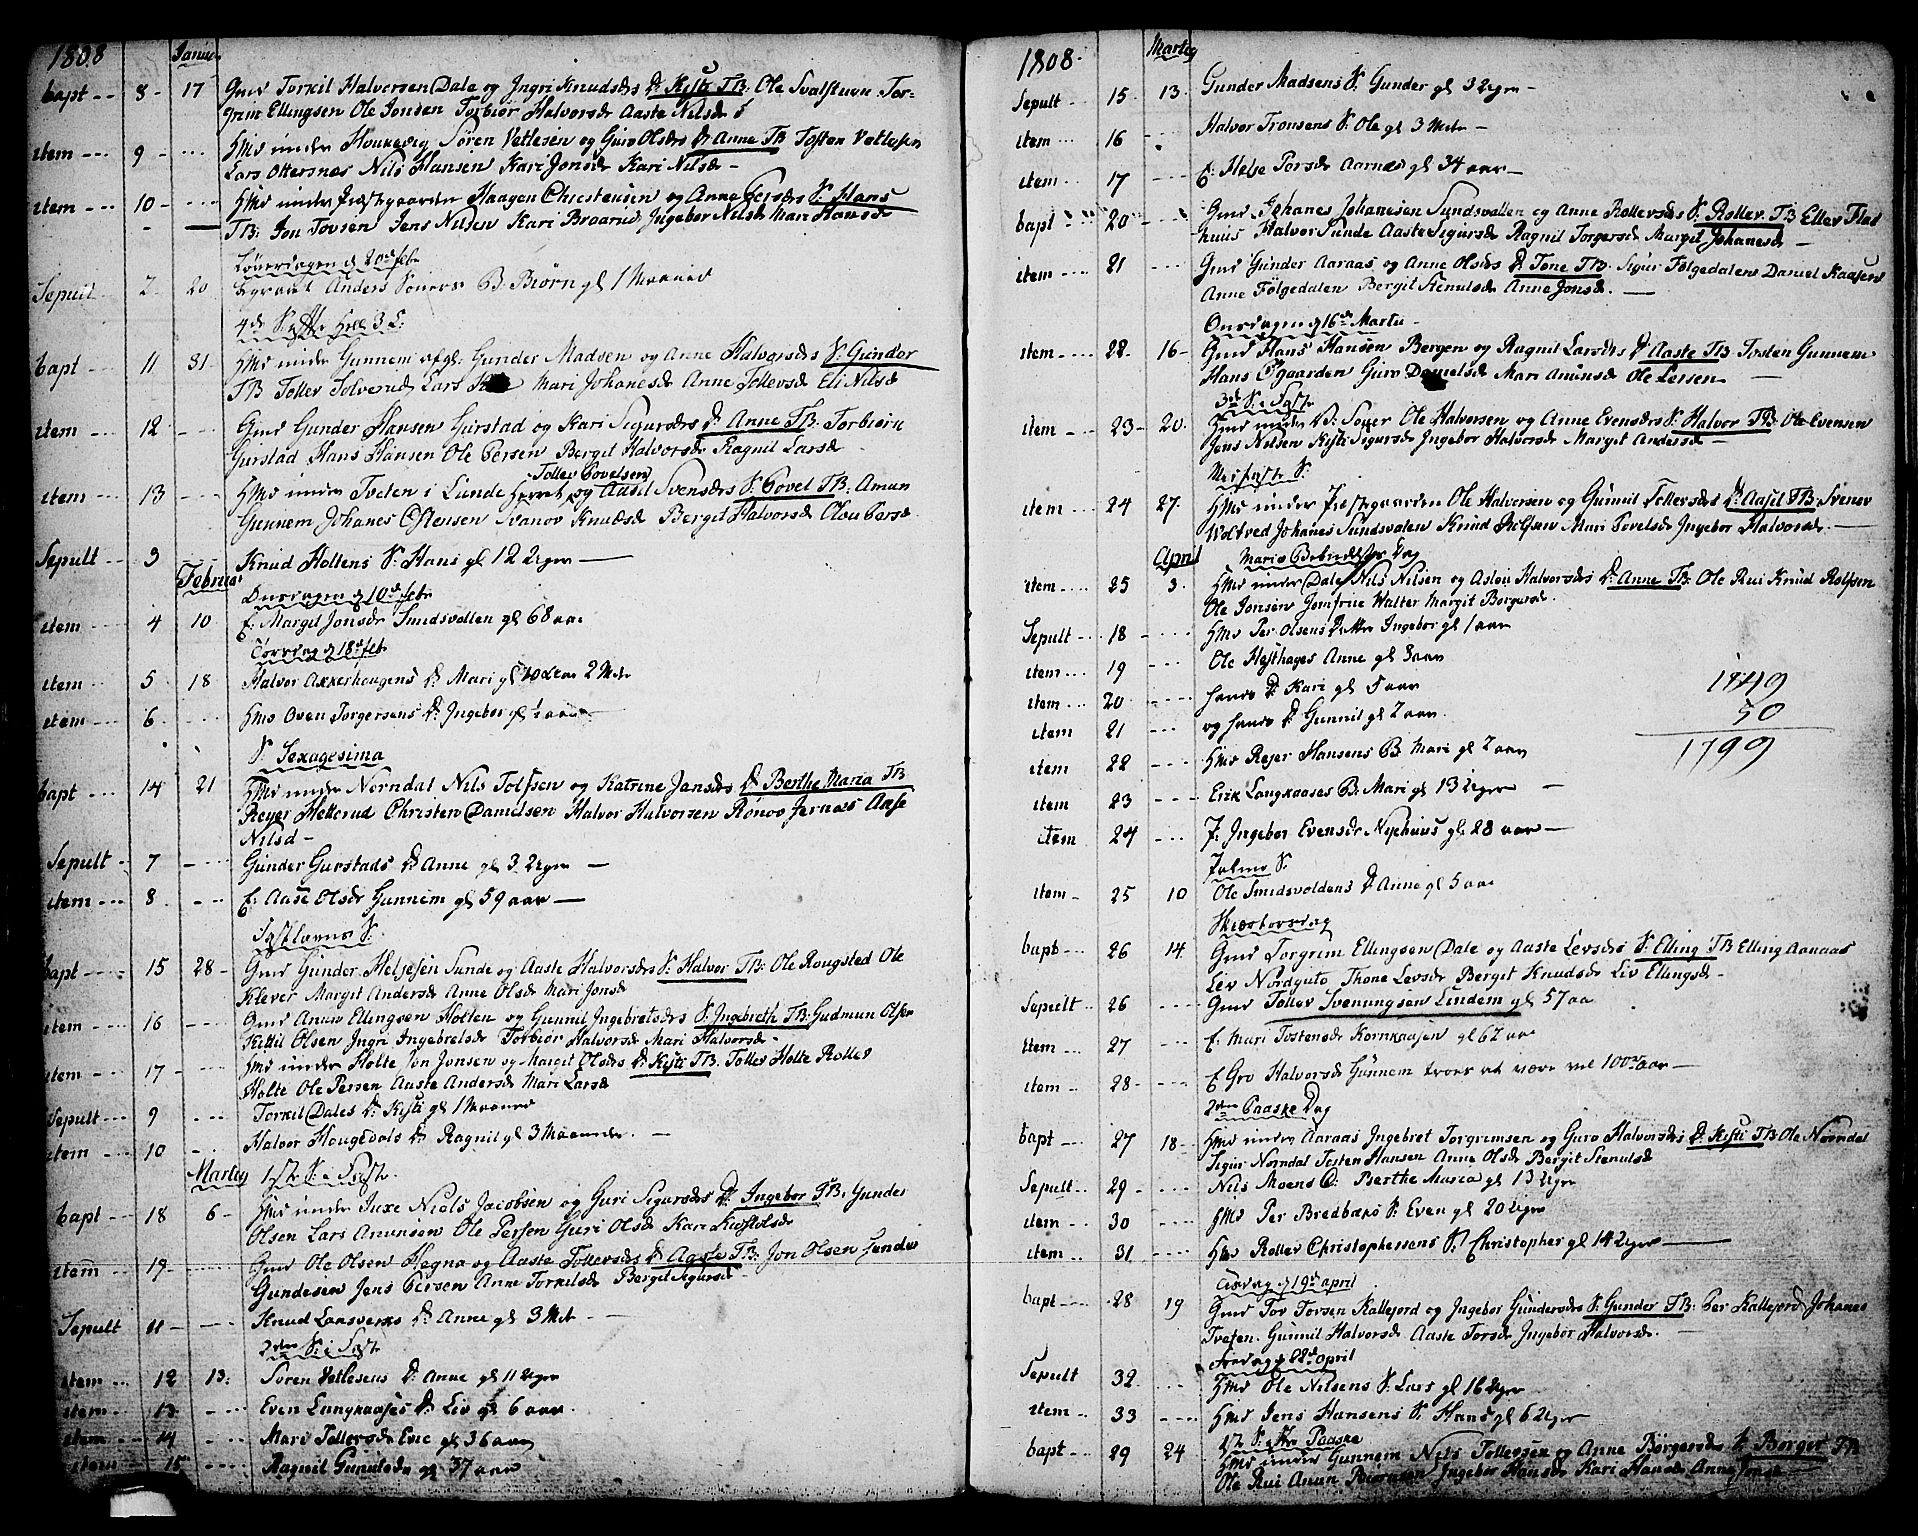 1808 Januar
bapt 8 17 Gmd Torkil Halvorsen Dale og Ingri Knudsdr D. Kisti TB. Ole Svalstuen Tor-
grim Ellingsen Ole Jonsen Torbiør Halvorsdr Aaste Nilsdr
item 9 Hmd under Søren Vetlesen og Guro Olsdr D. Anne TB Tosten Vetlesen
Lars Ottersnes Nils Hansen Kari Jonsdr Kari Nilsdr
item 10 Hmd under Prestgaarden Haagen Christensen og Anne Persdr S. Hans
TB. Jon Tovsen Jens Nilsen Kari Braarud Ingebor Nilsdr Mari Hansdr
Løverdagen d 20de febr
Sepult 2 20 Anders B. Biørn gl 1 Maaned
4de S. efter Hell 3 K.
bapt 11 31 Hmd under Gunnem Gunder Madsen og Anne Halvorsdr S. Gunder
TB Tollev Solverud Lars Mari Johanesdr Anne Tollevsdr Eli Nilsdr
item 12 Gmd Gunder Hansen Gurstad og Kari Sigursdr D. Anne TB. Torbiørn
Gurstad Hans Hansen Ole Persen Bergit Halvorsdr Ragnil Larsdr
Tollev Povelsen
item 13 Hmd under Tveten i Lunde og Aasil Svensdr S. Povel TB. Amun
Gunnem Johanes Ostensen Svanov Knudsdr Bergit Halvorsdr Olou Persdr
Sepult 3 Knud Holtens S. Hans gl 12 Uger
Februar
Onsdagen d 10de febr
item 4 10 E. Margit Jonsdr Sundsvallen gl 68 aar
Torsdag d 18de feb
item 5 18 Halvor Axkerhougens D. Mari gl 2 Mdr
item 6 Hmd Oven Torgersens D. Ingebor gl 1/2 aar
S. Sexagesima
bapt 14 21 Hmd under Norndal Nils Tolfsen og Katrine Jansdr D. Berthe Maria TB
Reyer Hetterud Christen Danielsen Halvor Halvorsen Rønov Jernaas Aase
Nilsd
Sepult 7 Gunder Gurstads D. Anne gl 3 Uger
item 8 E. Aase Olsdr Gunnem gl 59 aar
Fastlavns S.
bapt 15 28 Gmd Gunder Heljesen Sunde og Aaste Halvorsdr S. Halvor TB. Ole Rougsted Ole
Klever Margit Andersdr Anne Olsdr Mari Jonsdr
item 16 Gmd Amun Ellingsen Holten og Gunnil Ingebretsdr S. Ingebreth TB. Gudmun Olsen
Kittil Olsen Ingri Ingebretsdr Torbiør Halvorsdr Mari Halvorsdr
item 17 Hmd under Holte Jon Jonsen og Margit Olsdr D. Kisti TB. Tollev Holte Rollev
Holte Ole Persen Aaste Andersdr Mari Larsdr
Sepult 9 Torkil Dales D. Kisti gl 1 Maaned
item 10 Halvor Hougedals D. Ragnil gl 3 Maaneder
Martij 1ste S. i Faste
bapt 18 6 Hmd under Juxe Niels Jacobsen og Guri Sigursdr D. Ingebor TB. Gunder
Olsen Lars Amunsen Ole Persen Guri Olsdr Kari
item 19 Gmd Ole Olsen Hegna og Aaste Tollevsdr D. Aaste TB. Jon Olsen Gunder
Gundersen Jens Persen Anne Torkilsdr Bergit Sigursdr
Sepult 11 Knud Laasverks D. Anne gl 3 Mdr
2den S. i Faste
item 12 13 Søren Vetlesens D. Anne gl 11 Uger
item 13 Even Langkaases D. Liv gl 6 aar
item 14 Mari Tollevsdr Evie gl 36 aar
item 15 Ragnil Gunulsdr gl 37 aar
1808 Martij
Sepult 15 13 Gunder Madsens S. Gunder gl 3 Uger
item 16 Halvor Tronsens S. Ole gl 3 Mdr
item 17 E. Helje Torsdr Aarnes gl 34 aar
bapt 20 Gmd Johanes Johanesen Sundsvallen og Anne Rollevsdr S. Rollev TB Ellev Flad
huus Halvor Sunde Aaste Sigursdr Ragnil Torgersdr Margit Johanesdr
item 21 Gmd Gunder Aaraas og Anne Olsdr D. Tone TB. Sigur Folgedalen Daniel Kaasen
Anne Folgedalen Bergit Stenulsdr Anne Jonsdr
Onsdagen d 16de Martii
item 22 16 Gmd Hans Hansen Bergen og Ragnil Larsdr D. Aaste TB. Tosten Gunnem
Hans Øgaarden Guro Danielsdr Mari Amunsdr Ole Larsen
3de S. i Faste
item 23 20 Hmd under Ole Halvorsen og Anne Evensdr S. Halvor TB. Ole Evensen
Jens Nilsen Kisti Sigursdr Ingebor Halvorsdr Margit Andersdr
Midfaste S.
item 24 27 Hmd under Prestegaarden Ole Halvorsen og Gunnil Tollevsdr D. Aasil TB. Svenov
Woltved Johanes Sundsvalen Knud Mari Povelsdr Ingebor Halvorsdr
April Mariæ Bebudelses Dag
item 25 3 Hmd under Dale Nils Nilsen og Aslou Halvorsdr D. Anne TB. Ole Rui Knud Rolfsen
Ole Jonsen Jomfrue Walter Margit Borgersdr
Sepult 18 Hmd Per Olsens Datter Ingebor gl 1 aar
item 19 Ole Hesthages Anne gl 8 aar
item 20 hans D. Kari gl 5 aar
item 21 og hans D. Gunnil gl 2 aar
item 22 Hmd Reyer Hansens B. Mari gl 2 aar
item 23 Erik Langkaases B. Mari gl 13 Uger
item 24 P. Ingebor Evensdr Nyehuus gl 28 aar
Palme S.
item 25 10 Ole Sundsvoldens D. Anne gl 5 aar
Skiertorsdag
bapt 26 14 Gmd Torgrim Ellingsen Dale og Aaste Levsdr S. Elling TB Elling Aaraas
Liv Nordguto Thone Levsdr Bergit Knudsdr Liv Ellingsdr
Sepult 26 Gmd Tollev Svenungsen Lindem gl 57 aa
item 27 E. Mari Tostensdr Kornkaasen gl 62 aar
item 28 E. Gro Halvorsdr Gunnem troes at være vel 100de aar
2den Paaske Dag
bapt 27 18 Hmd under Aaraas Ingebret Torgrimsen og Guro Halvorsdr D. Kisti TB Ole Norndal
Sigur Norndal Tosten Hansen Anne Olsdr Bergit Stenulsdr
Sepult 29 Nils Moens D. Berthe Maria gl 13 Uger
item 30 Hmd Per Bredbækø S. Even gl 20 Uger
item 31 Hmd Rollev Christophersens S. Christopher gl 14 Uger
Tirsdag d 19de april
bapt 28 19 Gmd Tov Tovsen Kallejord og Ingebor Gundersdr S. Gunder TB. Per Kallejord Johanes
Tveten Gunnil Halvorsdr Aaste Torsdr Ingebor Halvorsdr
Fredag d 22de april
Sepult 32 Hmd Ole Nilsens S. Lars gl 16 Uger
item 33 Hmd Jens Hansens S. Hans gl 6 Uger
1ste S. efter Paaske
bapt 29 24 Hmd under Gunnem Nils Tollevsen og Anne Børgersdr S. Borger TB
Ole Rui Amun Biørnsen Ingebor Hansdr Kari Hansdr Anne Jonsdr
1849
50
1799